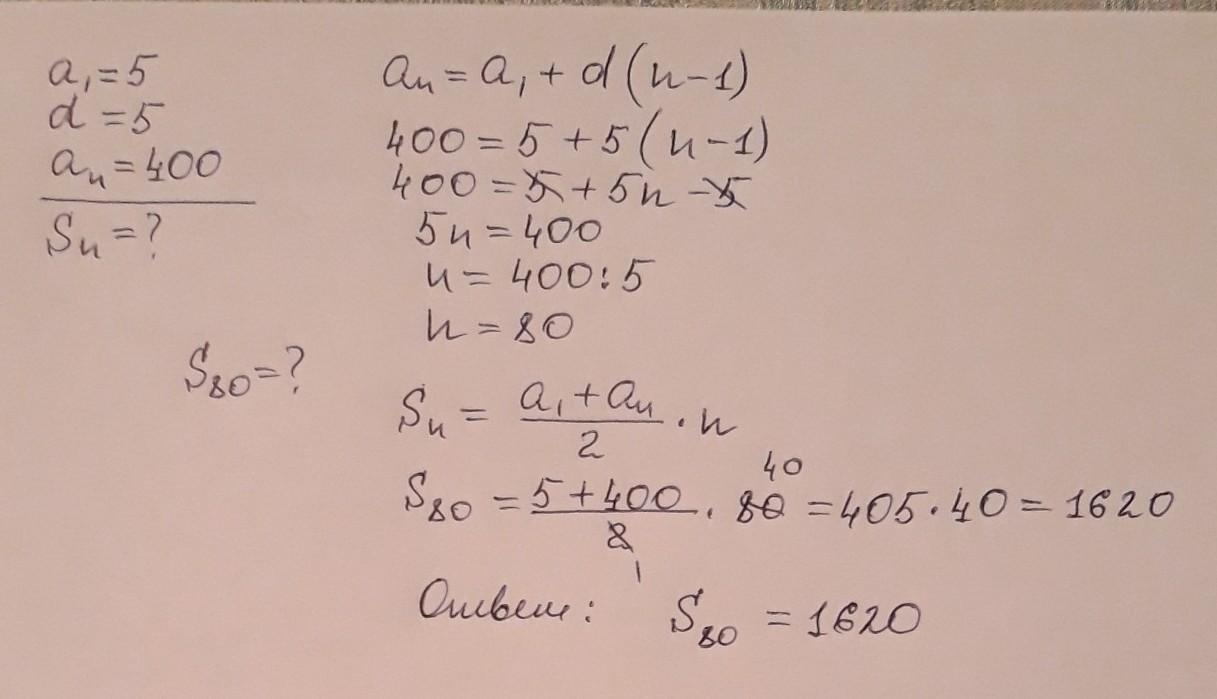 a₁=5
d=5
aₙ=400
Sₙ=?
aₙ=a₁+d(n-1)
400=5+5(n-1)
400=5+5n-5
5n=400
n=400:5
n=80
S₈₀=?
Sₙ= (a₁+aₙ)/2 · n
40
S₈₀ = (5+400)/2 · 80 = 405·40 = 1620
1
Ответ: S₈₀ = 1620